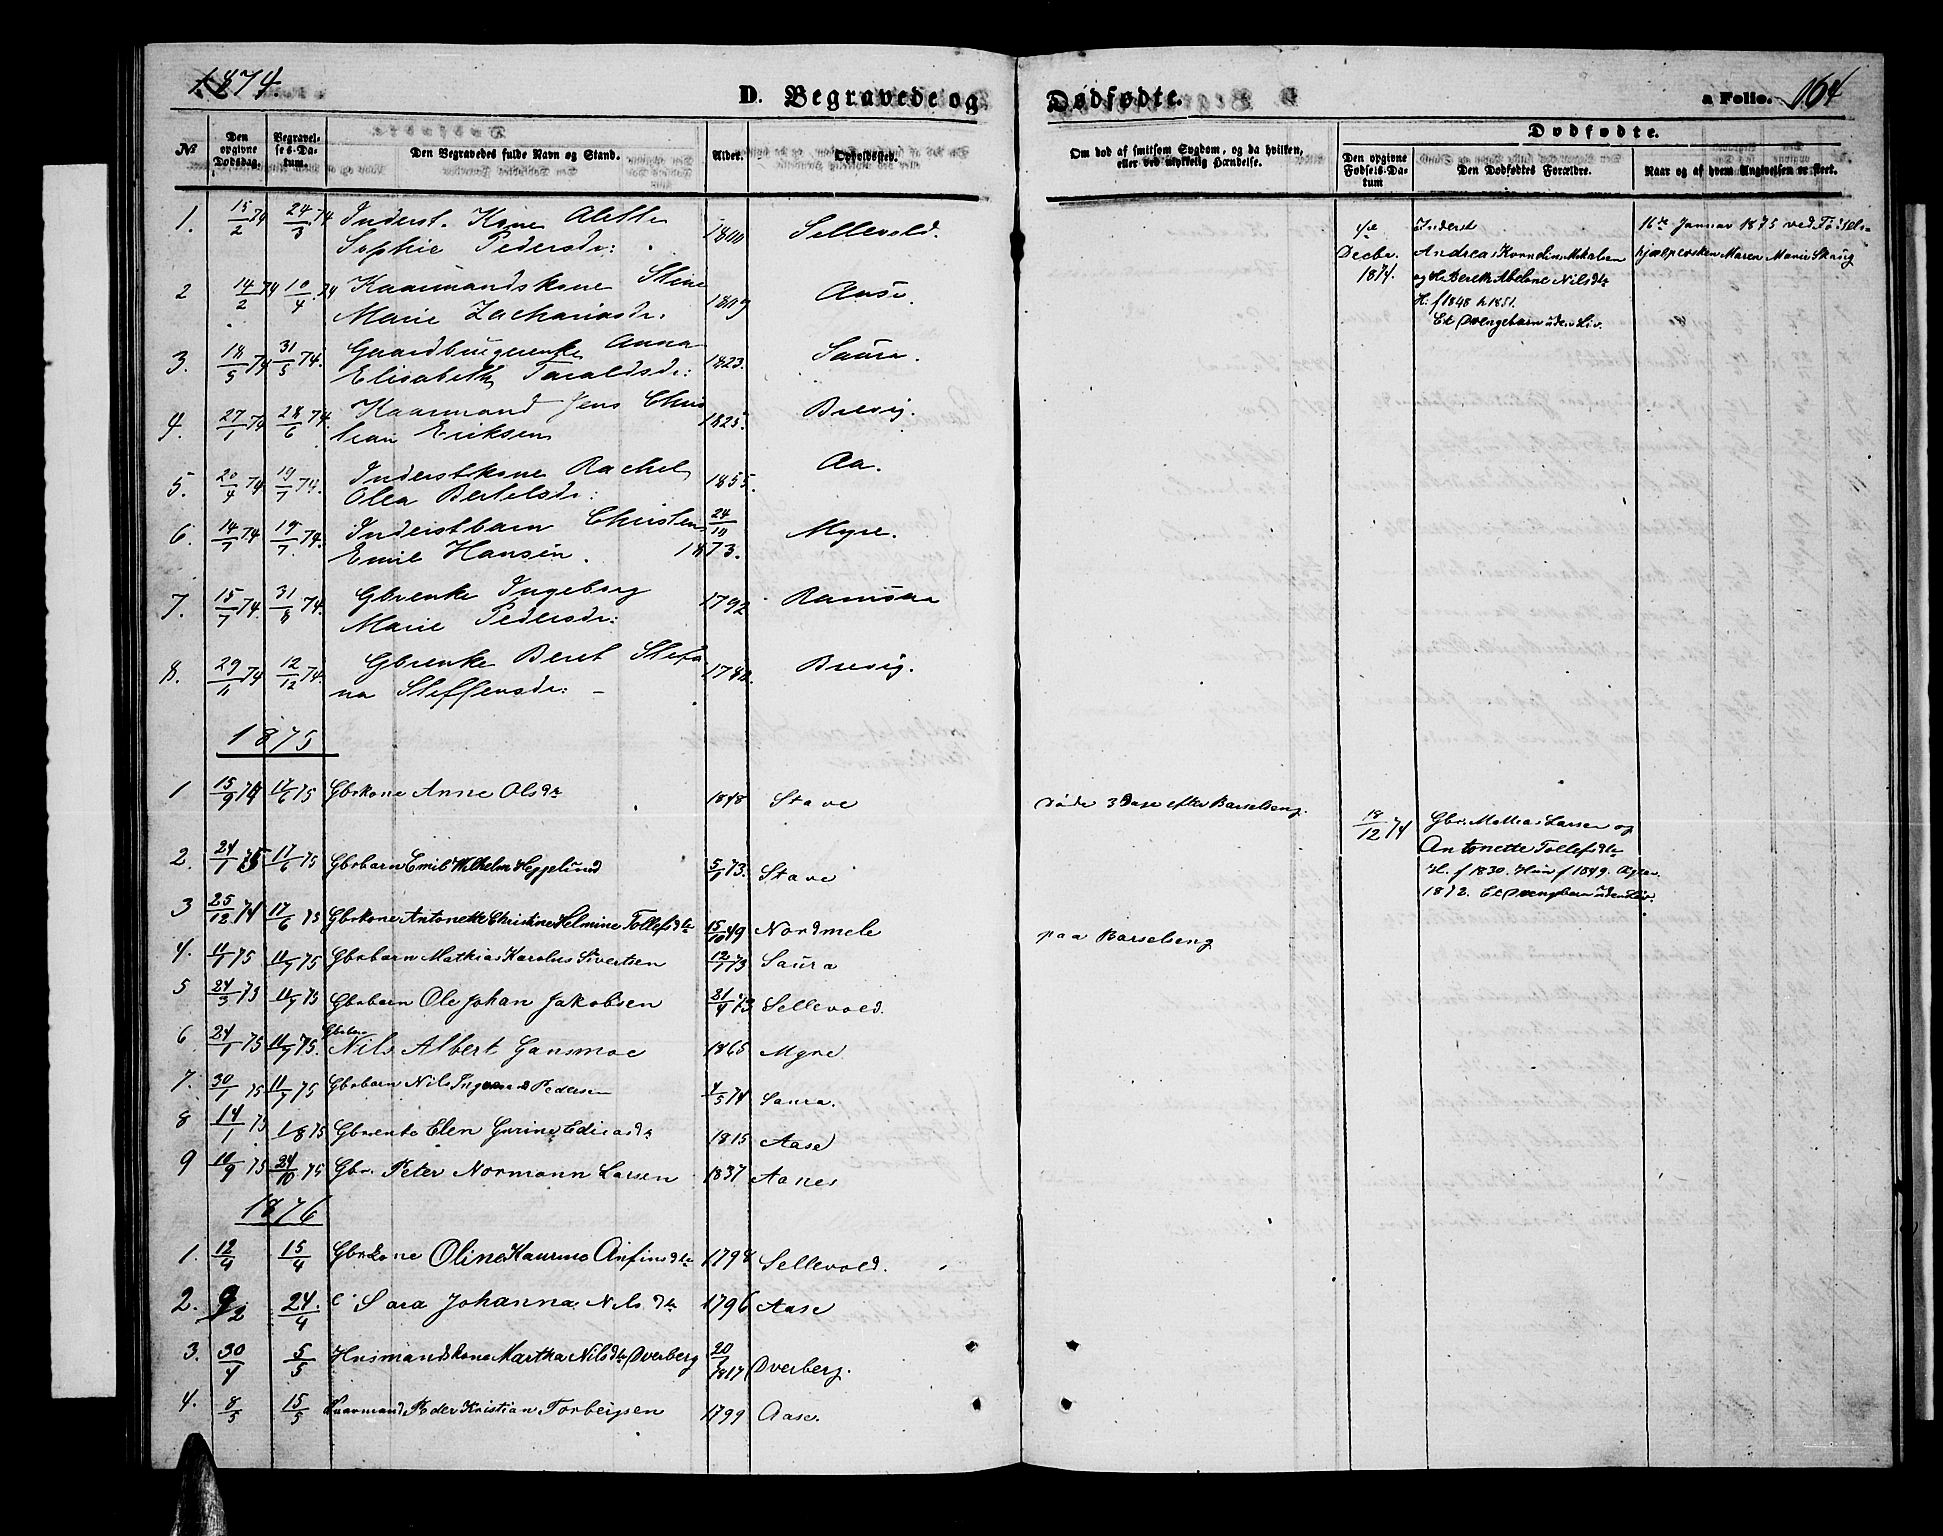 1874.
D. Begravede og Dødfødte.
a Folio. 164
Dødfødte.
No
Den opgivne Dødsdag.
Begravelses-Datum.
Den Begravedes fulde Navn og Stand.
Alder.
Opholdssted.
Om død af smitsom Sygdom, og da hvilken, eller ved ulykkelig Hændelse.
Den opgivne Fødsels-Datum
Den Dødfødtes Forældre.
Naar og af hvem Angivelsen er skeet.
1. 15/2 74 24/3 74 Inderst. Kone Alette
Sophie Pedersdr: Sellevold.
2 14/2 74 10/4 74 Kaarmandskone Stine
Marie Zachariasdr. 1809 Aase.
3. 18/5 74 31/5 74. Gaardbrugerenke Anna
Elisabeth Taraldsdr: 1823. Saura.
4. 27/1 74 28/6 74. Kaarmand Jens Chris
tian Eriksen 1825. Brevig.
5. 20/4 74 19/7 74. Inderstkone Rachel
Olea Bertelsdr: 1855. Aa.
6. 14/7 74 19/7 74. Inderstbarn Christen
Emil Hansen. 24/10 1873. Myre.
7. 15/7 74. 31/8 74. Gbrenke Ingeborg
Marie Pedersdr: 1792 Ramsaa
8. 29/11 74 12/12 74. Gbrenke Beret Stefa
na Steffensdr: Brevig.
Decbr.
1874.
Inderst
Andreas Korndius Mikalsen
og H. Bereth Abelone Nilsdtr
H. f 1848 h 1851.
Et Drengebarn uden Liv.
16de Januar 1875 ved Fødsels-
hjælpersken Maren Marie Skaug
1875
1 15/9 74 17/6 75 Gbrkone Anne Olsdtr 1848 Stave døde 3 Dage efter Barselseng.
2. 24/1 75 17/6 75 Gbrbarn Emil Wilhelm Heggelund 5/1 73. Stave
3 25/12 74 17/6 75 Gbrkone Antonette Christine Helmine Tollefsdtr 15/10 49 Nordmele paa Barselseng
4. 11/1 75 11/7 75 Gbrbarn Mathias Karolus Sivertsen 12/7 73 Saura
5 24/3 75 11/7 75 Gbrbarn Ole Johan Jakobsen Sellevold.
6 24/1 75 11/7 75. Gbrbarn
Nils Albert Gansmoe 1865 Myre.
7. 30/1 75 11/7 75 Gbrbarn Nils Pedersen 4/5 74 Saura.
8 14/1 75 1/8 75 Gbrenke Elen 1815 Aase
9 10/9 75 24/10 75 Gbr. Peter Normann Larsen 1837 Aanes
18/12 74 Gbr. Mathias Larsen og
Antonette Tollefsdtr
H. f 1830. Hun f 1849. Ægtev.
1872. Et Drengebarn uden Liv.
1876
1. 12/4 15/4 Gbrkone Oline Anfinsdtr 1798 Sellevold.
2. 9/2 24/4 Sara Johanna Nilsdtr 1796 Aase
3. 30/4 5/5 Husmandskone Martha Nilsdtr Dverberg 1817 Dverberg.
4. 8/5 15/5 Kaarmand Peder Kristian Torbergsen 1799 Aase.